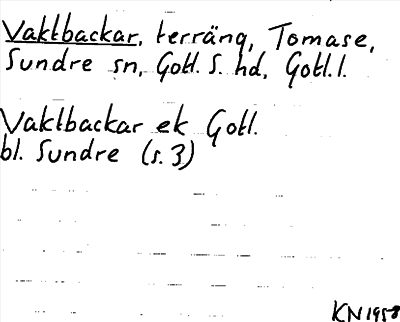 Vaktbackar, terräng, Tomase,
Sundre sn, Gotl. S. hd, Gotl. l.
Vaktbackar ek Gotl.
bl. Sundre (s. 3)
KN 1958